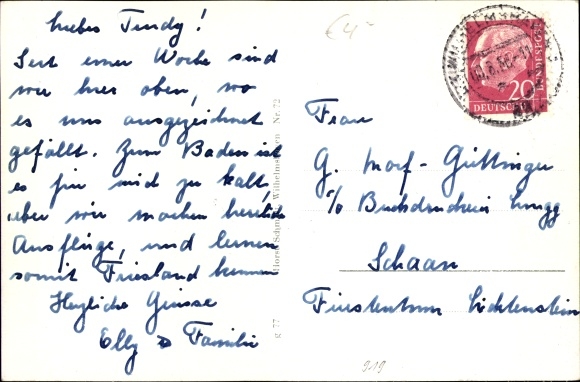 Liebes Trudy!
Seit einer Woche sind
wir hier oben, wo
es uns ausgezeichnet
gefällt. Zum Baden ist
es für mich zu kalt,
aber wir machen herrliche
Ausflüge, und lernen
somit Friesland kennen
Herzliche Grüsse
Elly & Familie
€ 4-
20
DEUTSCHE
BUNDESPOST
Wilhelmshaven Nr. 72
g 77
Frau
G. Morf-Güttinger
% Buchdruckerei
Schaan
Fürstentum Lichtenstein
919